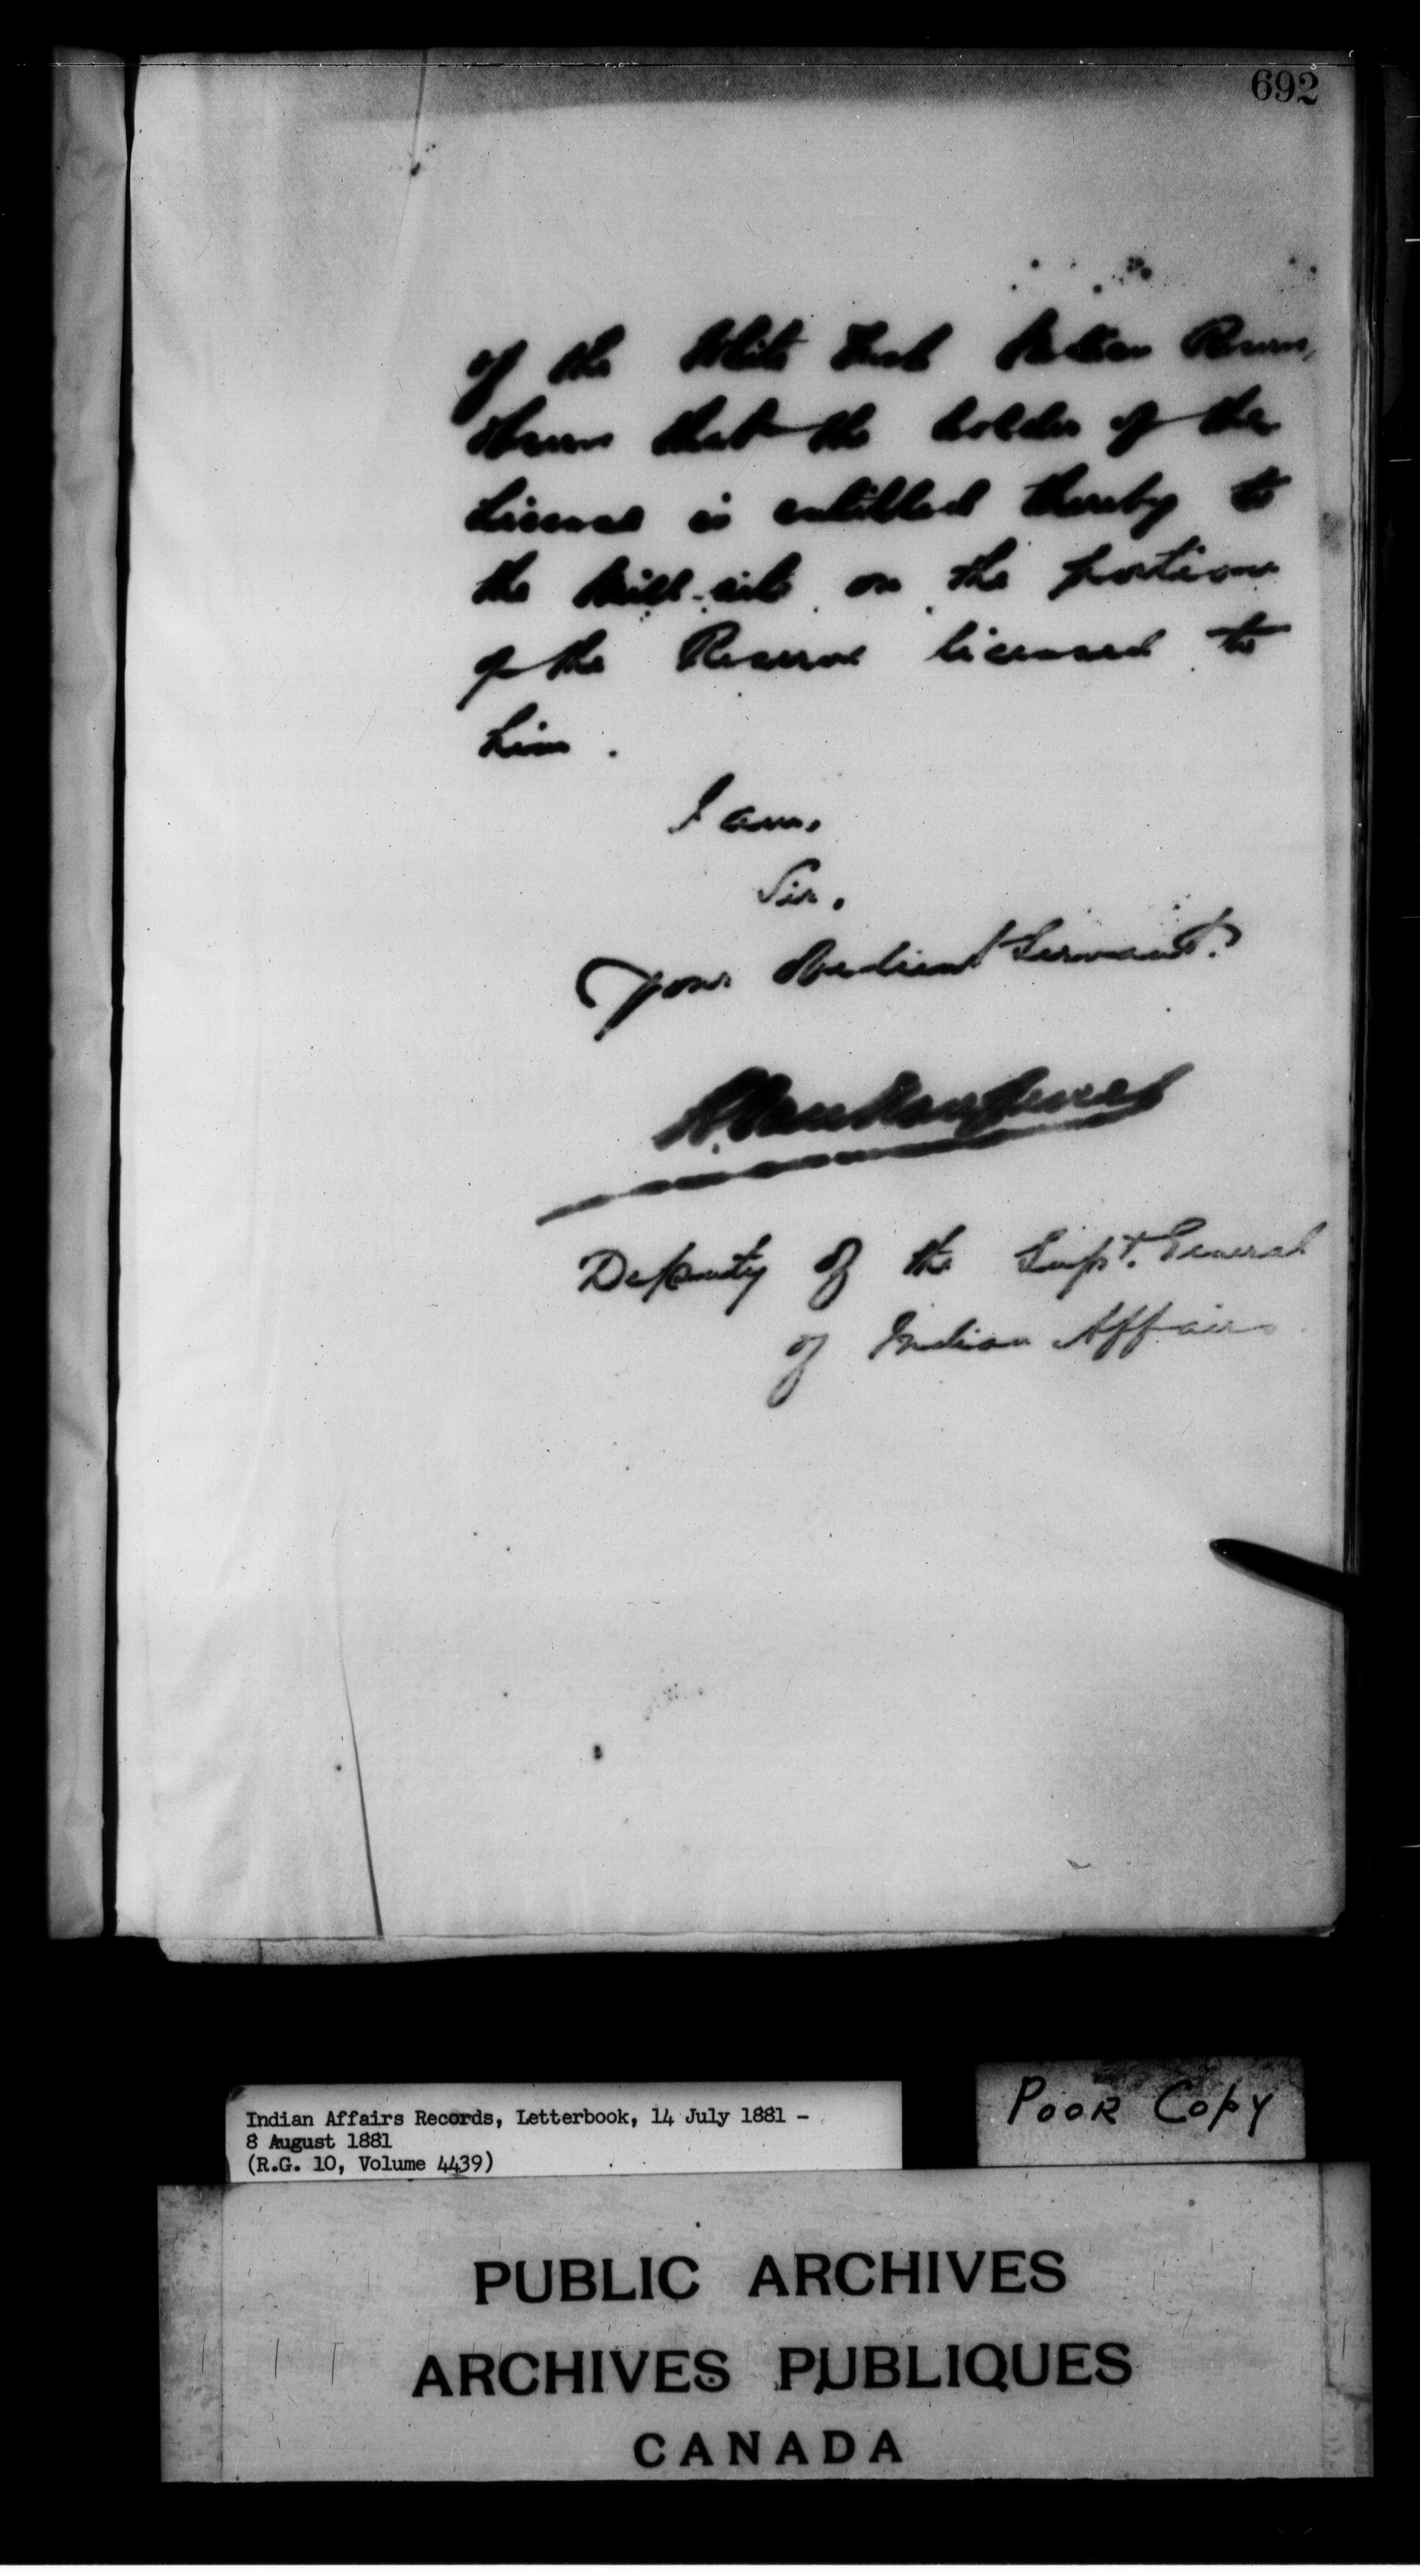 692
of the White Indian Reserve
that the holder of the
License is entitled thereby to
the Mill-site on the portion
of the Reserve licensed to
him.
I am,
Sir,
Your Obedient Servant.
Deputy of the Supt. General
of Indian Affairs
Indian Affairs Records, Letterbook, 14 July 1881 -
8 August 1881
(R.G. 10, Volume 4439)
POOR COPY
PUBLIC ARCHIVES
ARCHIVES PUBLIQUES
CANADA